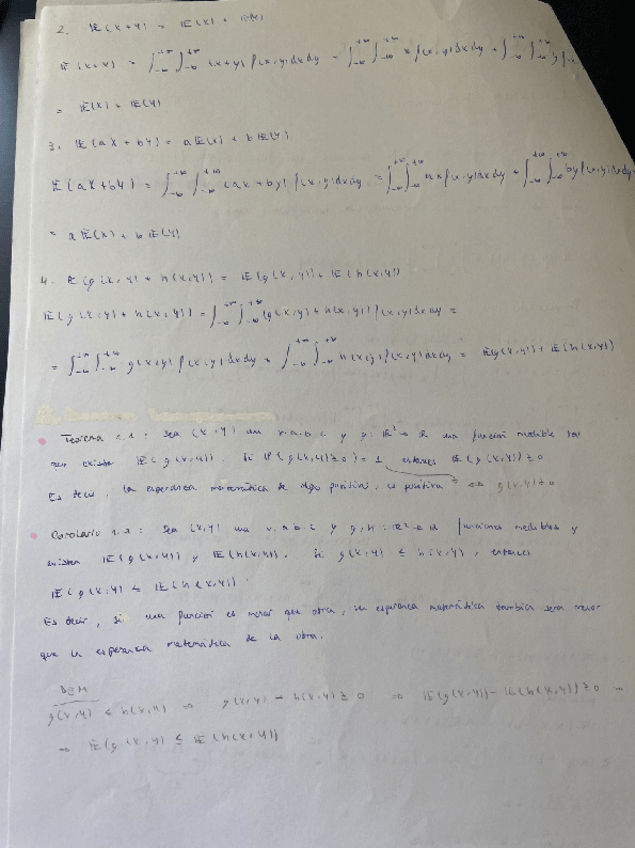 2. E(X+Y) = E(X) + E(Y)
E(X+Y) = ∫_{-∞}^{+∞} ∫_{-∞}^{+∞} (x+y) f(x,y) dx dy = ∫_{-∞}^{+∞} ∫_{-∞}^{+∞} x f(x,y) dx dy + ∫_{-∞}^{+∞} ∫_{-∞}^{+∞} y f
= E(X) + E(Y)
3. E(aX + bY) = a E(X) + b E(Y)
E(aX+bY) = ∫_{-∞}^{+∞} ∫_{-∞}^{+∞} (ax + by) f(x,y) dx dy = ∫_{-∞}^{+∞} ∫_{-∞}^{+∞} ax f(x,y) dx dy + ∫_{-∞}^{+∞} ∫_{-∞}^{+∞} by f(x,y) dx dy =
= a E(X) + b E(Y)
4. E(g(X,Y) + h(X,Y)) = E(g(X,Y)) + E(h(X,Y))
E(g(X,Y) + h(X,Y)) = ∫_{-∞}^{+∞} ∫_{-∞}^{+∞} (g(x,y) + h(x,y)) f(x,y) dx dy =
= ∫_{-∞}^{+∞} ∫_{-∞}^{+∞} g(x,y) f(x,y) dx dy + ∫_{-∞}^{+∞} ∫_{-∞}^{+∞} h(x,y) f(x,y) dx dy = E(g(X,Y)) + E(h(X,Y))
Teorema 2.1: Sea (X,Y) un v.a.b.c y g: R² → R una función medible tal
que existe E(g(X,Y)). Si P(g(X,Y) ≥ 0) = 1 entonces E(g(X,Y)) ≥ 0
Es decir, la esperanza matemática de algo positivo, es positiva g(X,Y) ≥ 0
Corolario 2.2: Sea (X,Y) una v.a.b.c y g,h: R² → R funciones medibles y
existen E(g(X,Y)) y E(h(X,Y)). Si g(X,Y) ≤ h(X,Y), entonces
E(g(X,Y) ≤ E(h(X,Y)).
Es decir, si una función es menor que otra, su esperanza matemática también será menor
que la esperanza matemática de la otra.
DEM
g(X,Y) ≤ h(X,Y) ⇒ g(X,Y) - h(X,Y) ≥ 0 ⇒ E(g(X,Y)) - E(h(X,Y)) ≥ 0
⇒ E(g(X,Y) ≤ E(h(X,Y))